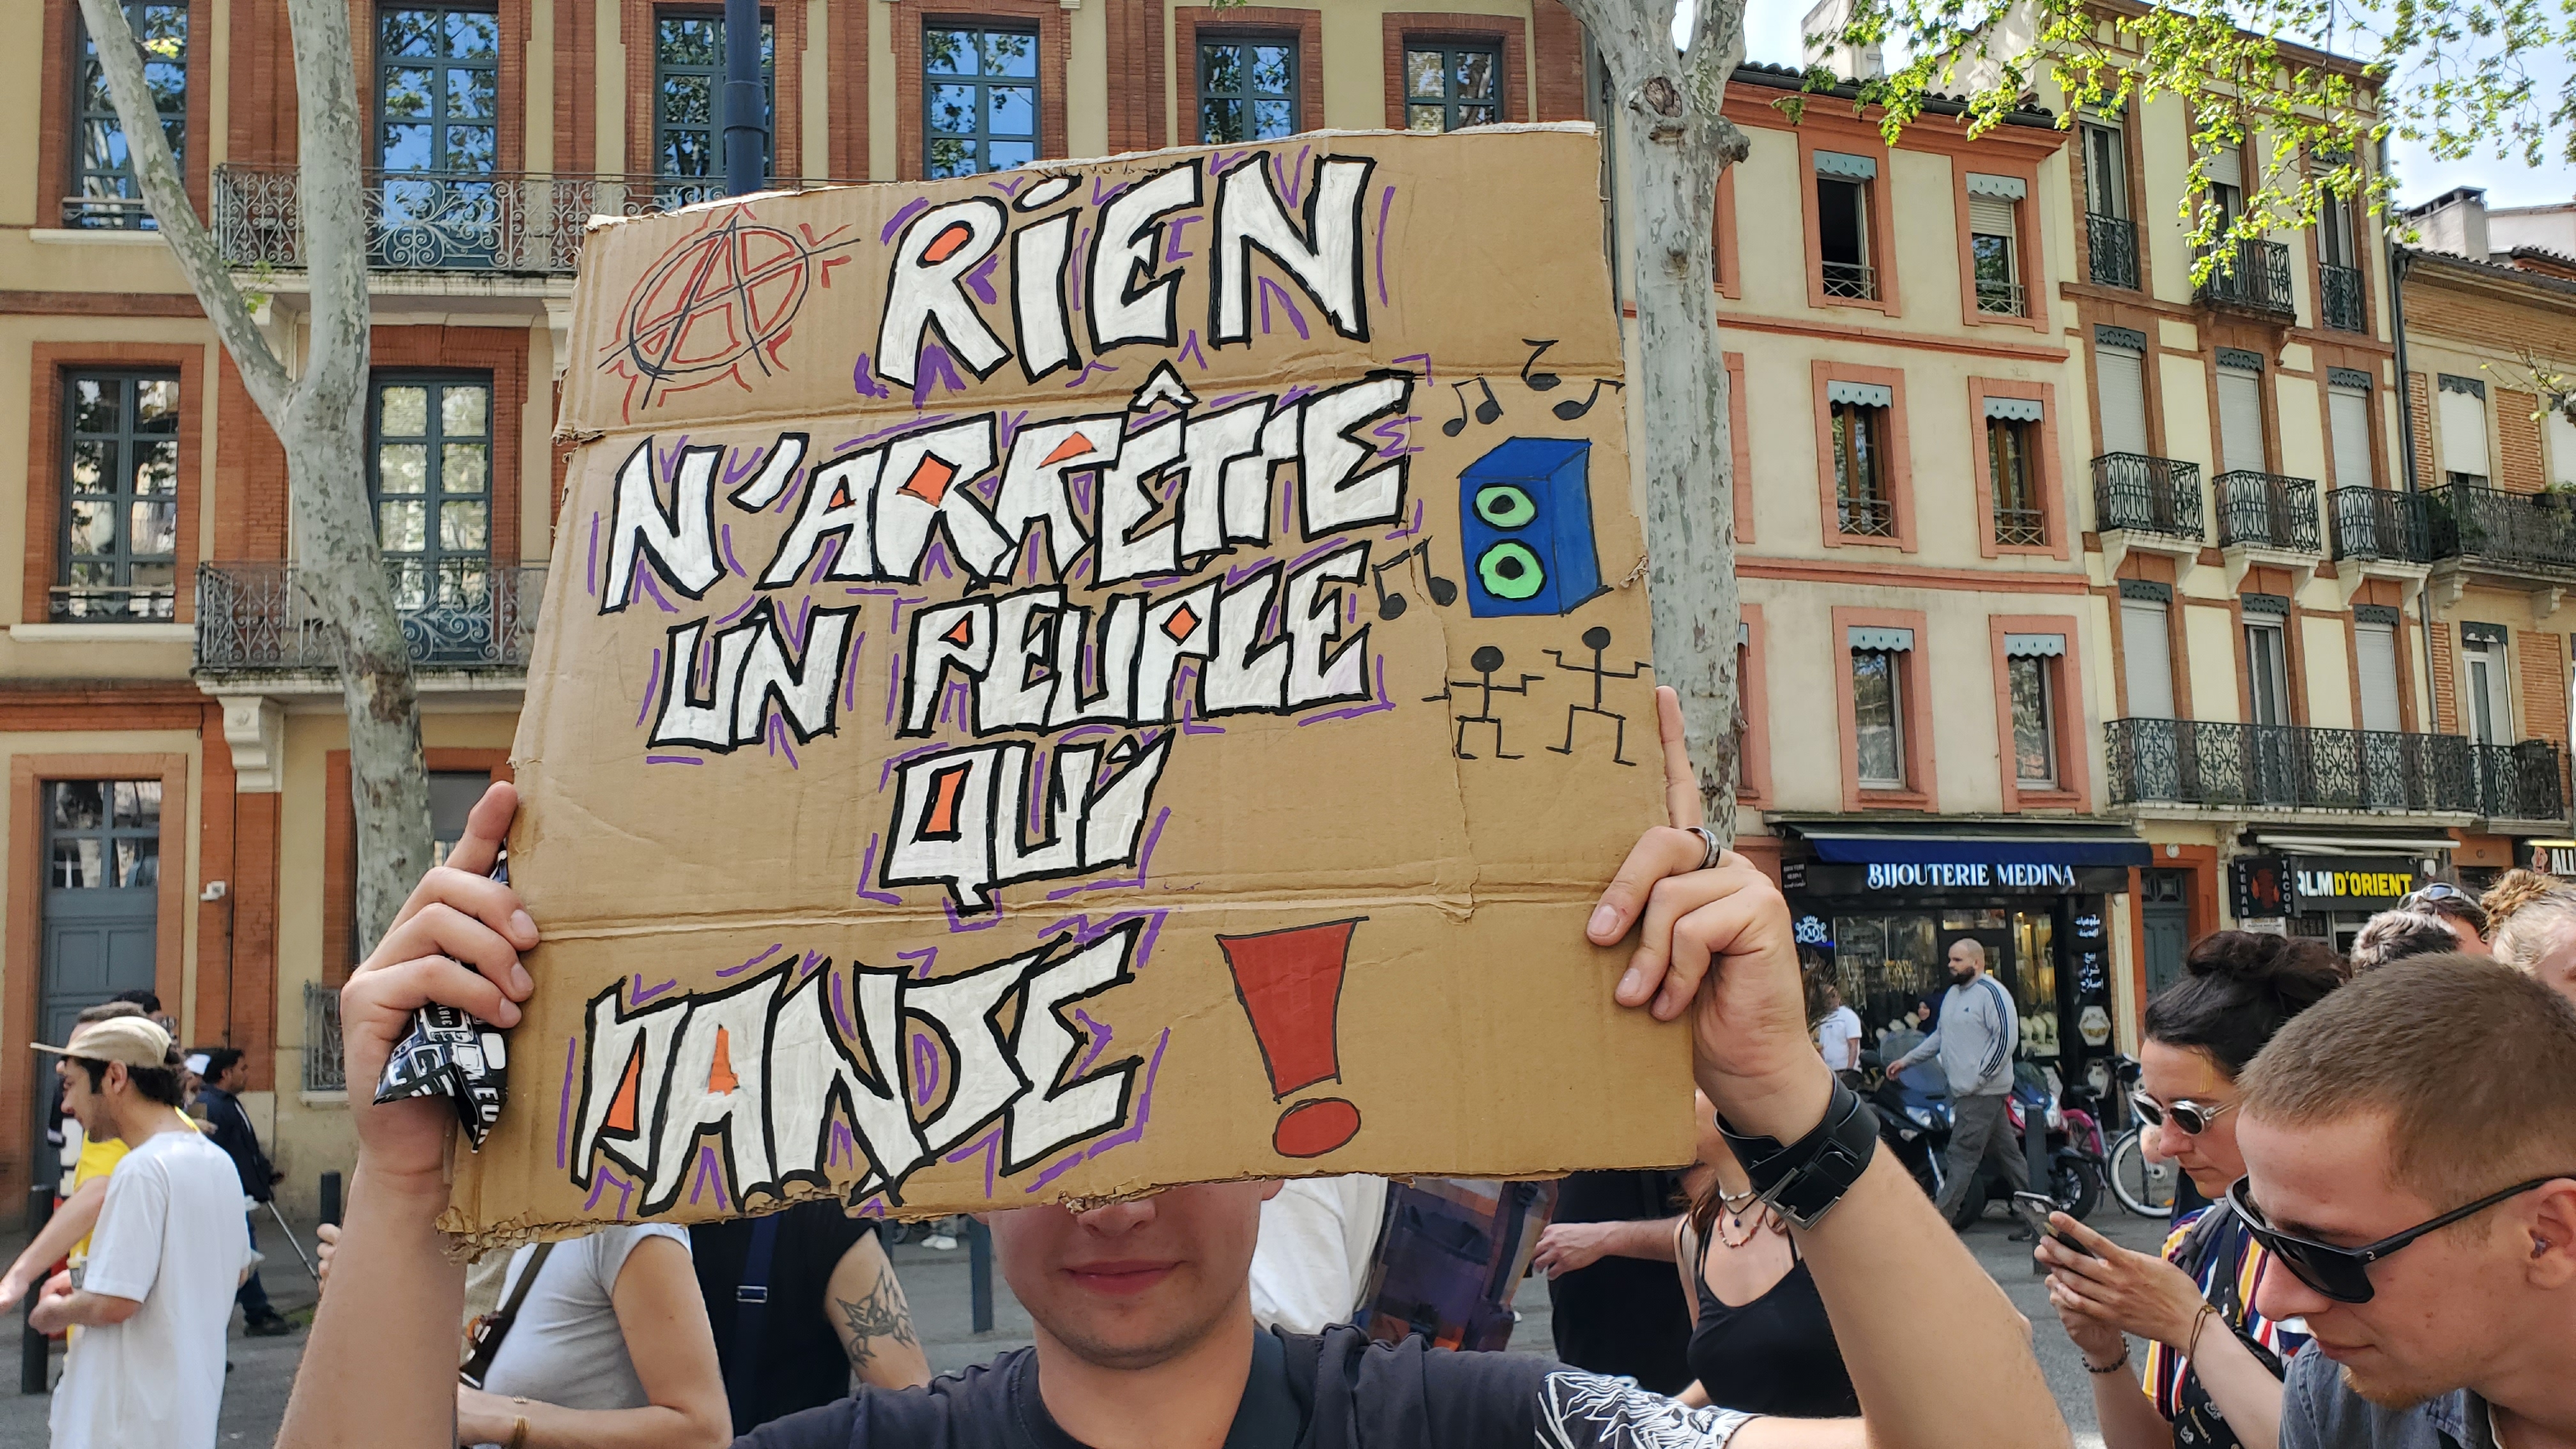 RiEN
N'ARRÊTE
UN PEUPLE
QUi
DANSE !
BIJOUTERIE MEDINA
KEBAB
TACOS
D'ORIENT